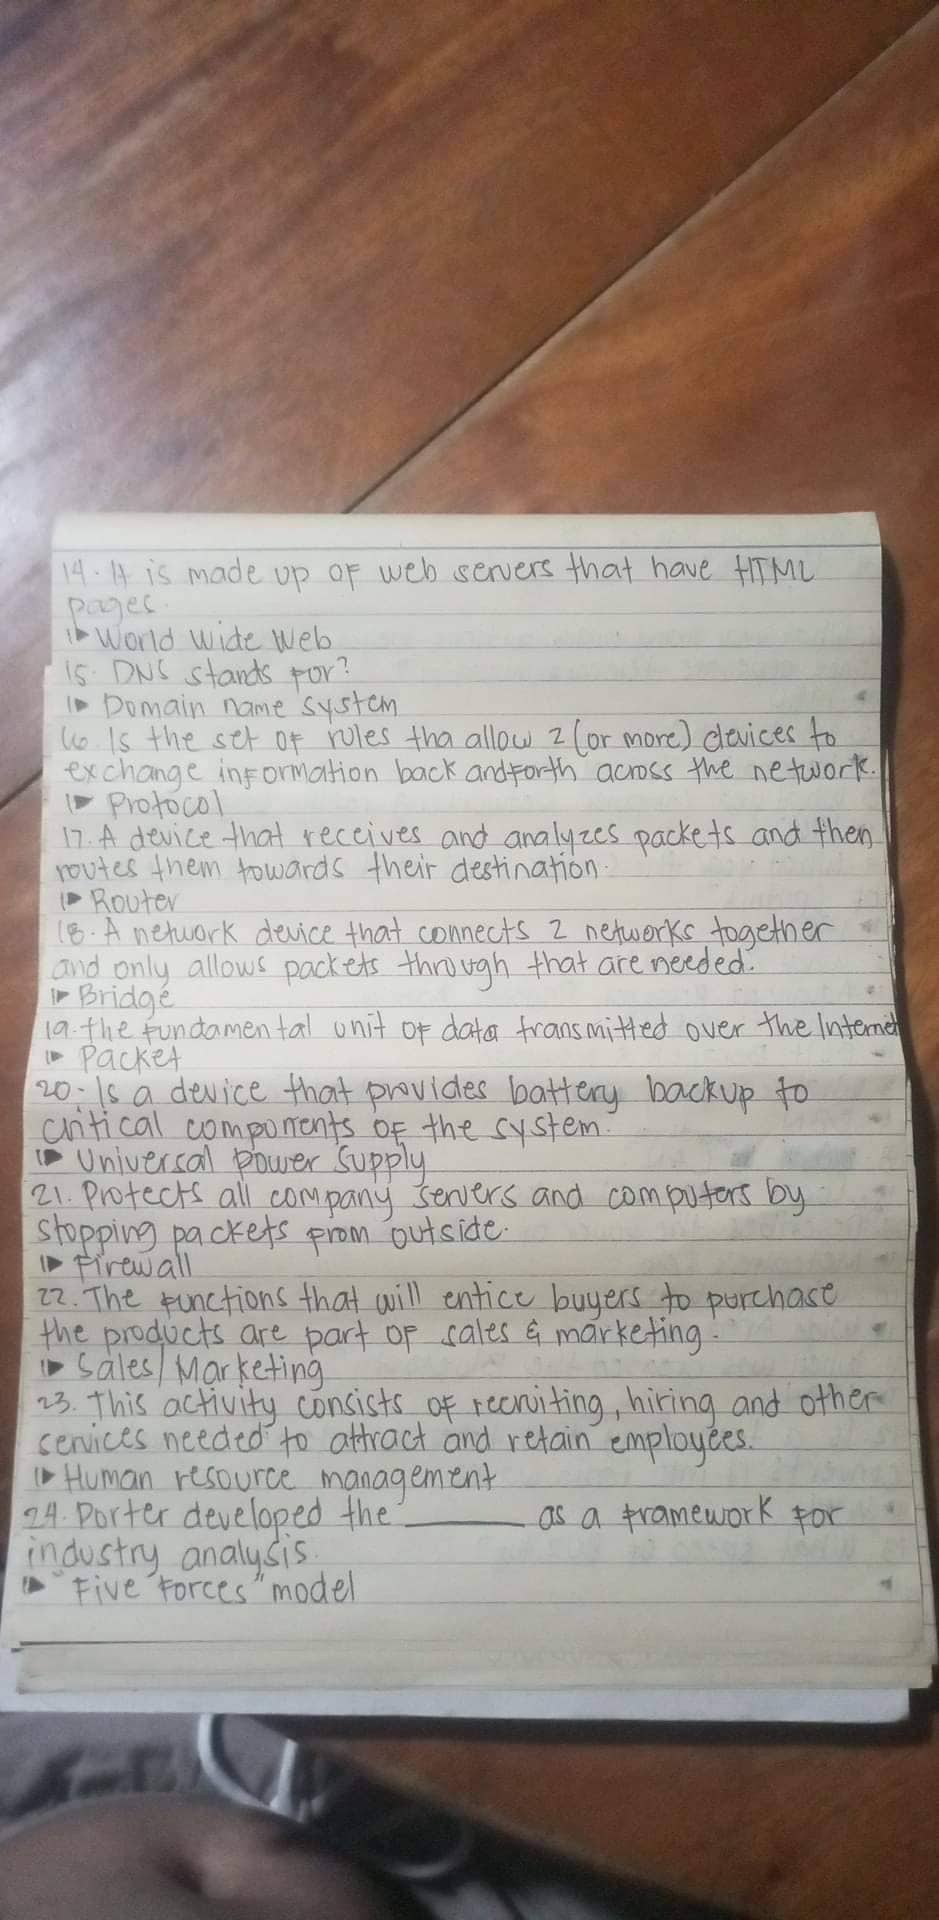 14. It is made up of web servers that have HTML
pages.
World Wide Web
15. DNS stands for?
Domain name system
16. Is the set of rules tha allow 2 (or more) devices to
exchange information back and forth across the network.
Protocol
17. A device that receives and analyzes packets and then
routes them towards their destination.
Router
18. A network device that connects 2 networks together
and only allows packets through that are needed.
Bridge
19. the fundamental unit of data transmitted over the Internet
Packet
20. Is a device that provides battery backup to
critical components of the system.
Universal Power Supply
21. Protects all company servers and computers by
stopping packets from outside.
Firewall
22. The functions that will entice buyers to purchase
the products are part of sales & marketing.
Sales/Marketing
23. This activity consists of recruiting, hiring and other
services needed to attract and retain employees.
Human resource management
24. Porter developed the ________ as a framework for
industry analysis.
"Five Forces" model